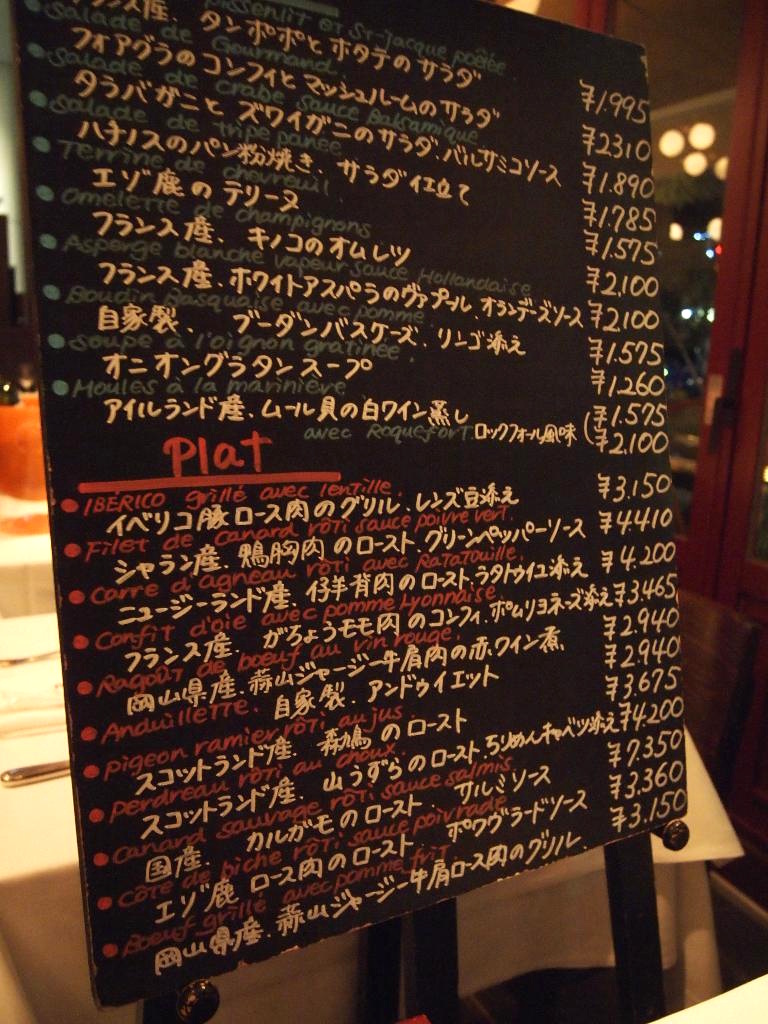 pissenlit et St-Jacque poêlée
フランス産、タンポポとホタテのサラダ ¥1.995
Salade de Gourmand
フォアグラのコンフィとマッシュルームのサラダ ¥2310
Salade de crabe sauce Balsamique
タラバガニとズワイガニのサラダ、バルサミコソース ¥1.890
Salade de tripe panée
ハチノスのパン粉焼き、サラダ仕立て ¥1.785
Terrine de chevreuil
エゾ鹿のテリーヌ ¥1.575
Omelette de champignons
フランス産、キノコのオムレツ ¥2.100
Asperge blanche vapeur sauce Hollandaise
フランス産、ホワイトアスパラのヴァプール、オランデーズソース ¥2.100
Boudin Basquaise avec pomme
自家製、ブーダンバスケーズ、リンゴ添え ¥1.575
Soupe à l'oignon gratinée
オニオングラタンスープ ¥1.260
Moules à la marinière
アイルランド産、ムール貝の白ワイン蒸し ¥1.575
avec Roquefort ロックフォール風味 ¥2.100
Plat
IBERICO grillé avec lentille
イベリコ豚ロース肉のグリル、レンズ豆添え ¥3.150
Filet de canard rôti sauce poivre vert
シャラン産、鴨胸肉のロースト、グリーンペッパーソース ¥4410
Carre d'agneau rôti avec Ratatouille
ニュージーランド産、仔羊背肉のロースト、ラタトゥイユ添え ¥4.200
Confit d'oie avec pomme Lyonnaise
フランス産、がちょうモモ肉のコンフィ、ポムリヨネーズ添え ¥3.465
Ragoût de boeuf au vin rouge
岡山県産、蒜山ジャージー牛肩肉の赤ワイン煮 ¥2.940
Anduillette
自家製、アンドゥイエット ¥2.940
pigeon ramier rôti au jus
スコットランド産、森鳩のロースト ¥3.675
perdreau rôti au choux
スコットランド産、山うずらのロースト、ちりめんキャベツ添え ¥4.200
Canard sauvage rôti sauce salmis
国産、カルガモのロースト、サルミソース ¥7.350
Côte de biche rôti sauce poivrade
エゾ鹿ロース肉のロースト、ポワヴラードソース ¥3.360
Boeuf grillé avec pomme frit
岡山県産、蒜山ジャージー牛肩ロース肉のグリル、 ¥3.150